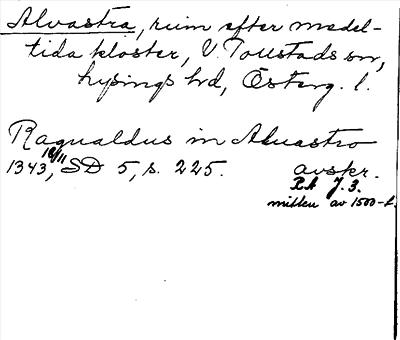 Alvastra, ruin efter medel-
tida kloster, V. Tollstads sn,
Lysings hd, Österg. l.
Ragualdus in Aluastro
1343 18/11, SD 5, s. 225. avskr.
RA J. 3.
mitten av 1500-t.